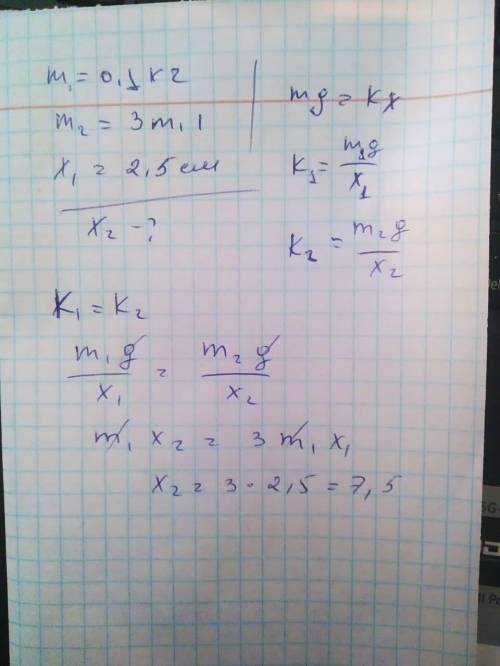 m₁ = 0,1 кг
m₂ = 3m₁ 1
x₁ = 2,5 см
x₂ - ?
mg = kx
K₁ = m₁g / x₁
K₂ = m₂g / x₂
K₁ = K₂
m₁g / x₁ = m₂g / x₂
m₁ x₂ = 3 m₁ x₁
x₂ = 3 · 2,5 = 7,5